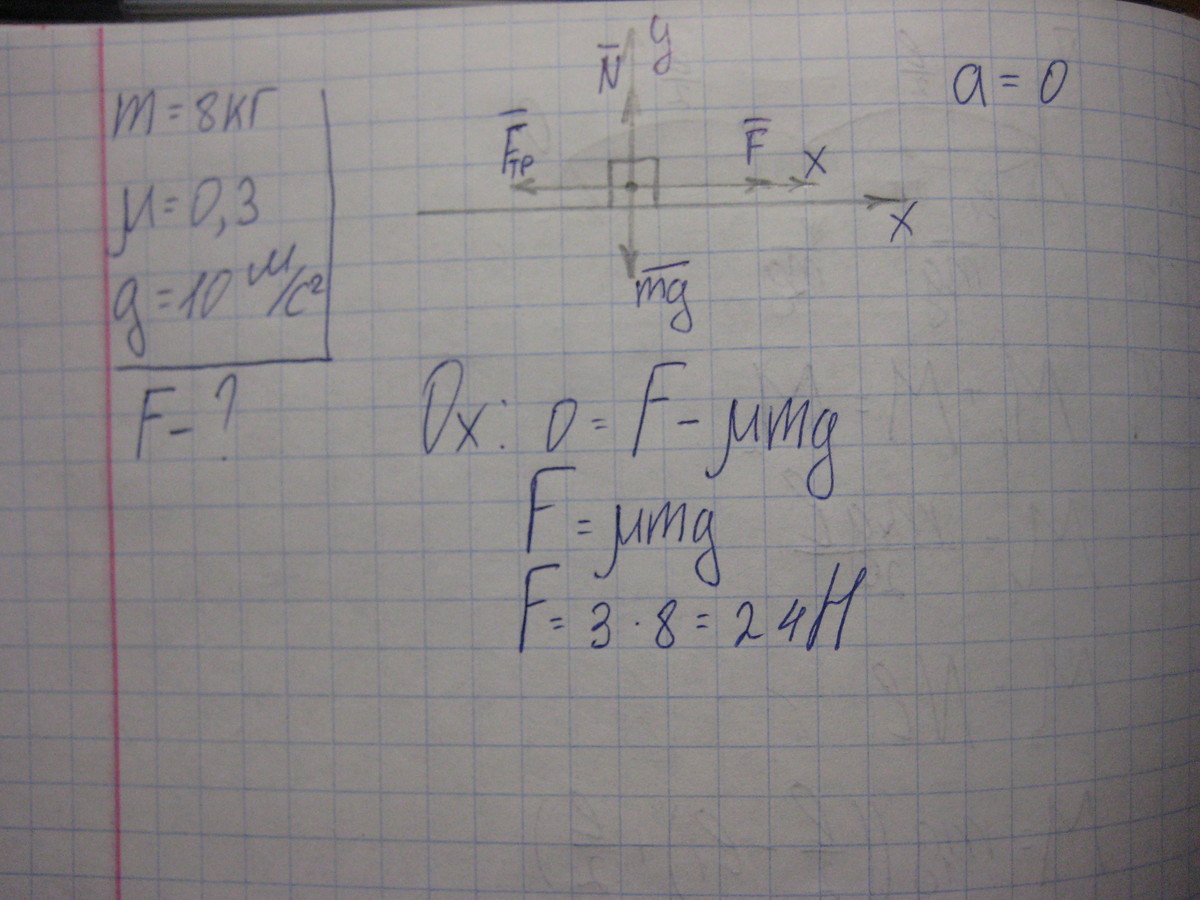 m = 8кг
μ = 0,3
g = 10 м/с²
F - ?
y
N̅
a = 0
F̅тр
F̅
x
x
m̅g̅
Ox: 0 = F - μmg
F = μmg
F = 3 · 8 = 24Н